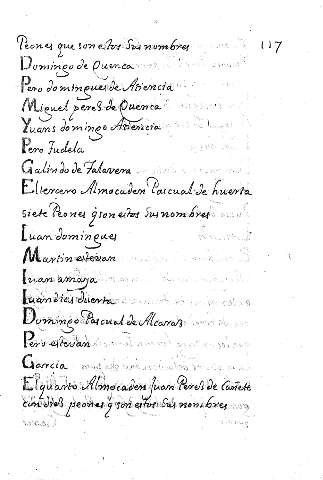 Peones que son estos sus nombres 117
Domingo de Quenca
Pero domingues de Atiencia
Miguel peres de Quenca
Yuans domingo Atiencia
Pero Tudela
Galindo de Talavera
El tercero Almocaden Pascual de huerta
siete Peones q son estos sus nombres
Iuan domingues
Martin estevan
Iuan amaya
Iuan dies duerta
Domingo Pascual de Alcaras
Pero estevan
Garcia
El quarto Almocaden Juan Peres de Cañete
con dies peones q son estos sus nombres